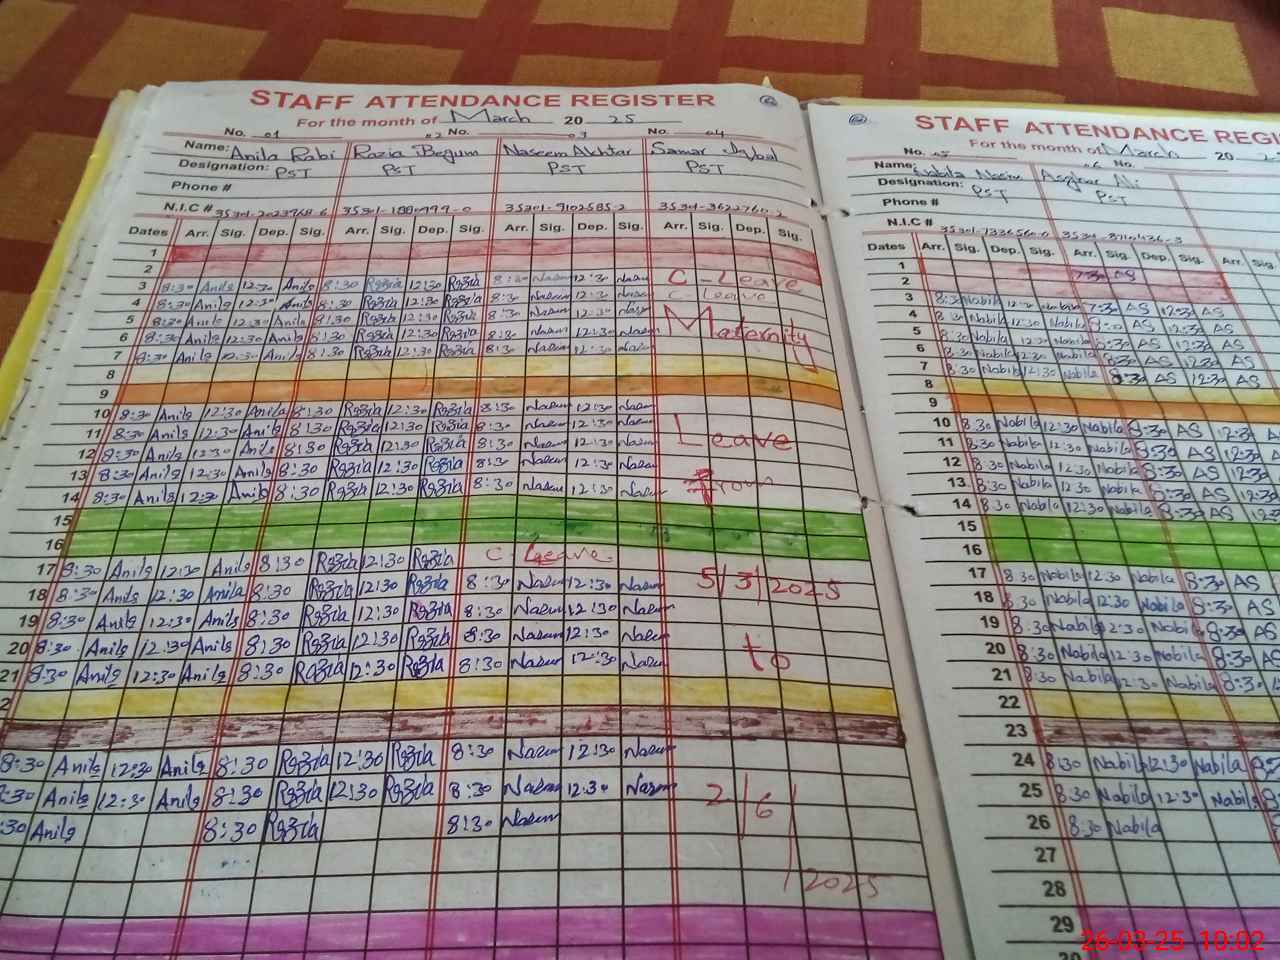 STAFF ATTENDANCE REGISTER
For the month of March 2025
No. 01 02 No. 03 No. 04
Name: Anila Rabi Razia Begum Naseem Akhtar Samar Iqbal
Designation: PST PST PST PST
Phone #
N.I.C #
Dates Arr. Sig. Dep. Sig. Arr. Sig. Dep. Sig. Arr. Sig. Dep. Sig. Arr. Sig. Dep. Sig.
1
2
3 8:30 Anila 12:30 Anila 8:30 Razia 12:30 Razia 8:30 Naseem 12:30 Naseem C-Leave
4 8:30 Anila 12:30 Anila 8:30 Razia 12:30 Razia 8:30 Naseem 12:30 Naseem C-Leave
5 8:30 Anila 12:30 Anila 8:30 Razia 12:30 Razia 8:30 Naseem 12:30 Naseem Maternity
6 8:30 Anila 12:30 Anila 8:30 Razia 12:30 Razia 8:30 Naseem 12:30 Naseem
7 8:30 Anila 12:30 Anila 8:30 Razia 12:30 Razia 8:30 Naseem 12:30 Naseem
8
9
10 8:30 Anila 12:30 Anila 8:30 Razia 12:30 Razia 8:30 Naseem 12:30 Naseem
11 8:30 Anila 12:30 Anila 8:30 Razia 12:30 Razia 8:30 Naseem 12:30 Naseem Leave
12 8:30 Anila 12:30 Anila 8:30 Razia 12:30 Razia 8:30 Naseem 12:30 Naseem
13 8:30 Anila 12:30 Anila 8:30 Razia 12:30 Razia 8:30 Naseem 12:30 Naseem
14 8:30 Anila 12:30 Anila 8:30 Razia 12:30 Razia 8:30 Naseem 12:30 Naseem From
15
16
17 8:30 Anila 12:30 Anila 8:30 Razia 12:30 Razia C-Leave
18 8:30 Anila 12:30 Anila 8:30 Razia 12:30 Razia 8:30 Naseem 12:30 Naseem 5/3/2025
19 8:30 Anila 12:30 Anila 8:30 Razia 12:30 Razia 8:30 Naseem 12:30 Naseem
20 8:30 Anila 12:30 Anila 8:30 Razia 12:30 Razia 8:30 Naseem 12:30 Naseem to
21 8:30 Anila 12:30 Anila 8:30 Razia 12:30 Razia 8:30 Naseem 12:30 Naseem
2
8:30 Anila 12:30 Anila 8:30 Razia 12:30 Razia 8:30 Naseem 12:30 Naseem
:30 Anila 12:30 Anila 8:30 Razia 12:30 Razia 8:30 Naseem 12:30 Naseem 2/6/
:30 Anila 8:30 Razia 8:30 Naseem
2025
STAFF ATTENDANCE REGI
For the month of March 20
No. 05 06 No.
Name: Nabila Asghar Ali
Designation: PST PST
Phone #
N.I.C #
Dates Arr. Sig. Dep. Sig. Arr. Sig. Dep. Sig. Arr.
1
2
3 8:30 Nabila 12:30 Nabila 7:30 AS 12:30 AS
4 8:30 Nabila 12:30 Nabila 8:30 AS 12:30 AS
5 8:30 Nabila 12:30 Nabila 8:30 AS 12:30 AS
6 8:30 Nabila 12:30 Nabila 8:30 AS 12:30 AS
7 8:30 Nabila 12:30 Nabila 8:30 AS 12:30 AS
8
9
10 8:30 Nabila 12:30 Nabila 8:30 AS 12:30 AS
11 8:30 Nabila 12:30 Nabila 8:30 AS 12:30 AS
12 8:30 Nabila 12:30 Nabila 8:30 AS 12:30 AS
13 8:30 Nabila 12:30 Nabila 8:30 AS 12:30
14 8:30 Nabila 12:30 Nabila 8:30 AS 12:30
15
16
17 8:30 Nabila 12:30 Nabila 8:30 AS
18 8:30 Nabila 12:30 Nabila 8:30 AS
19 8:30 Nabila 12:30 Nabila 8:30 AS
20 8:30 Nabila 12:30 Nabila 8:30 AS
21 8:30 Nabila 12:30 Nabila 8:30
22
23
24 8:30 Nabila 12:30 Nabila
25 8:30 Nabila 12:30 Nabila
26 8:30 Nabila
27
28
29
30
26-03-25 10:02